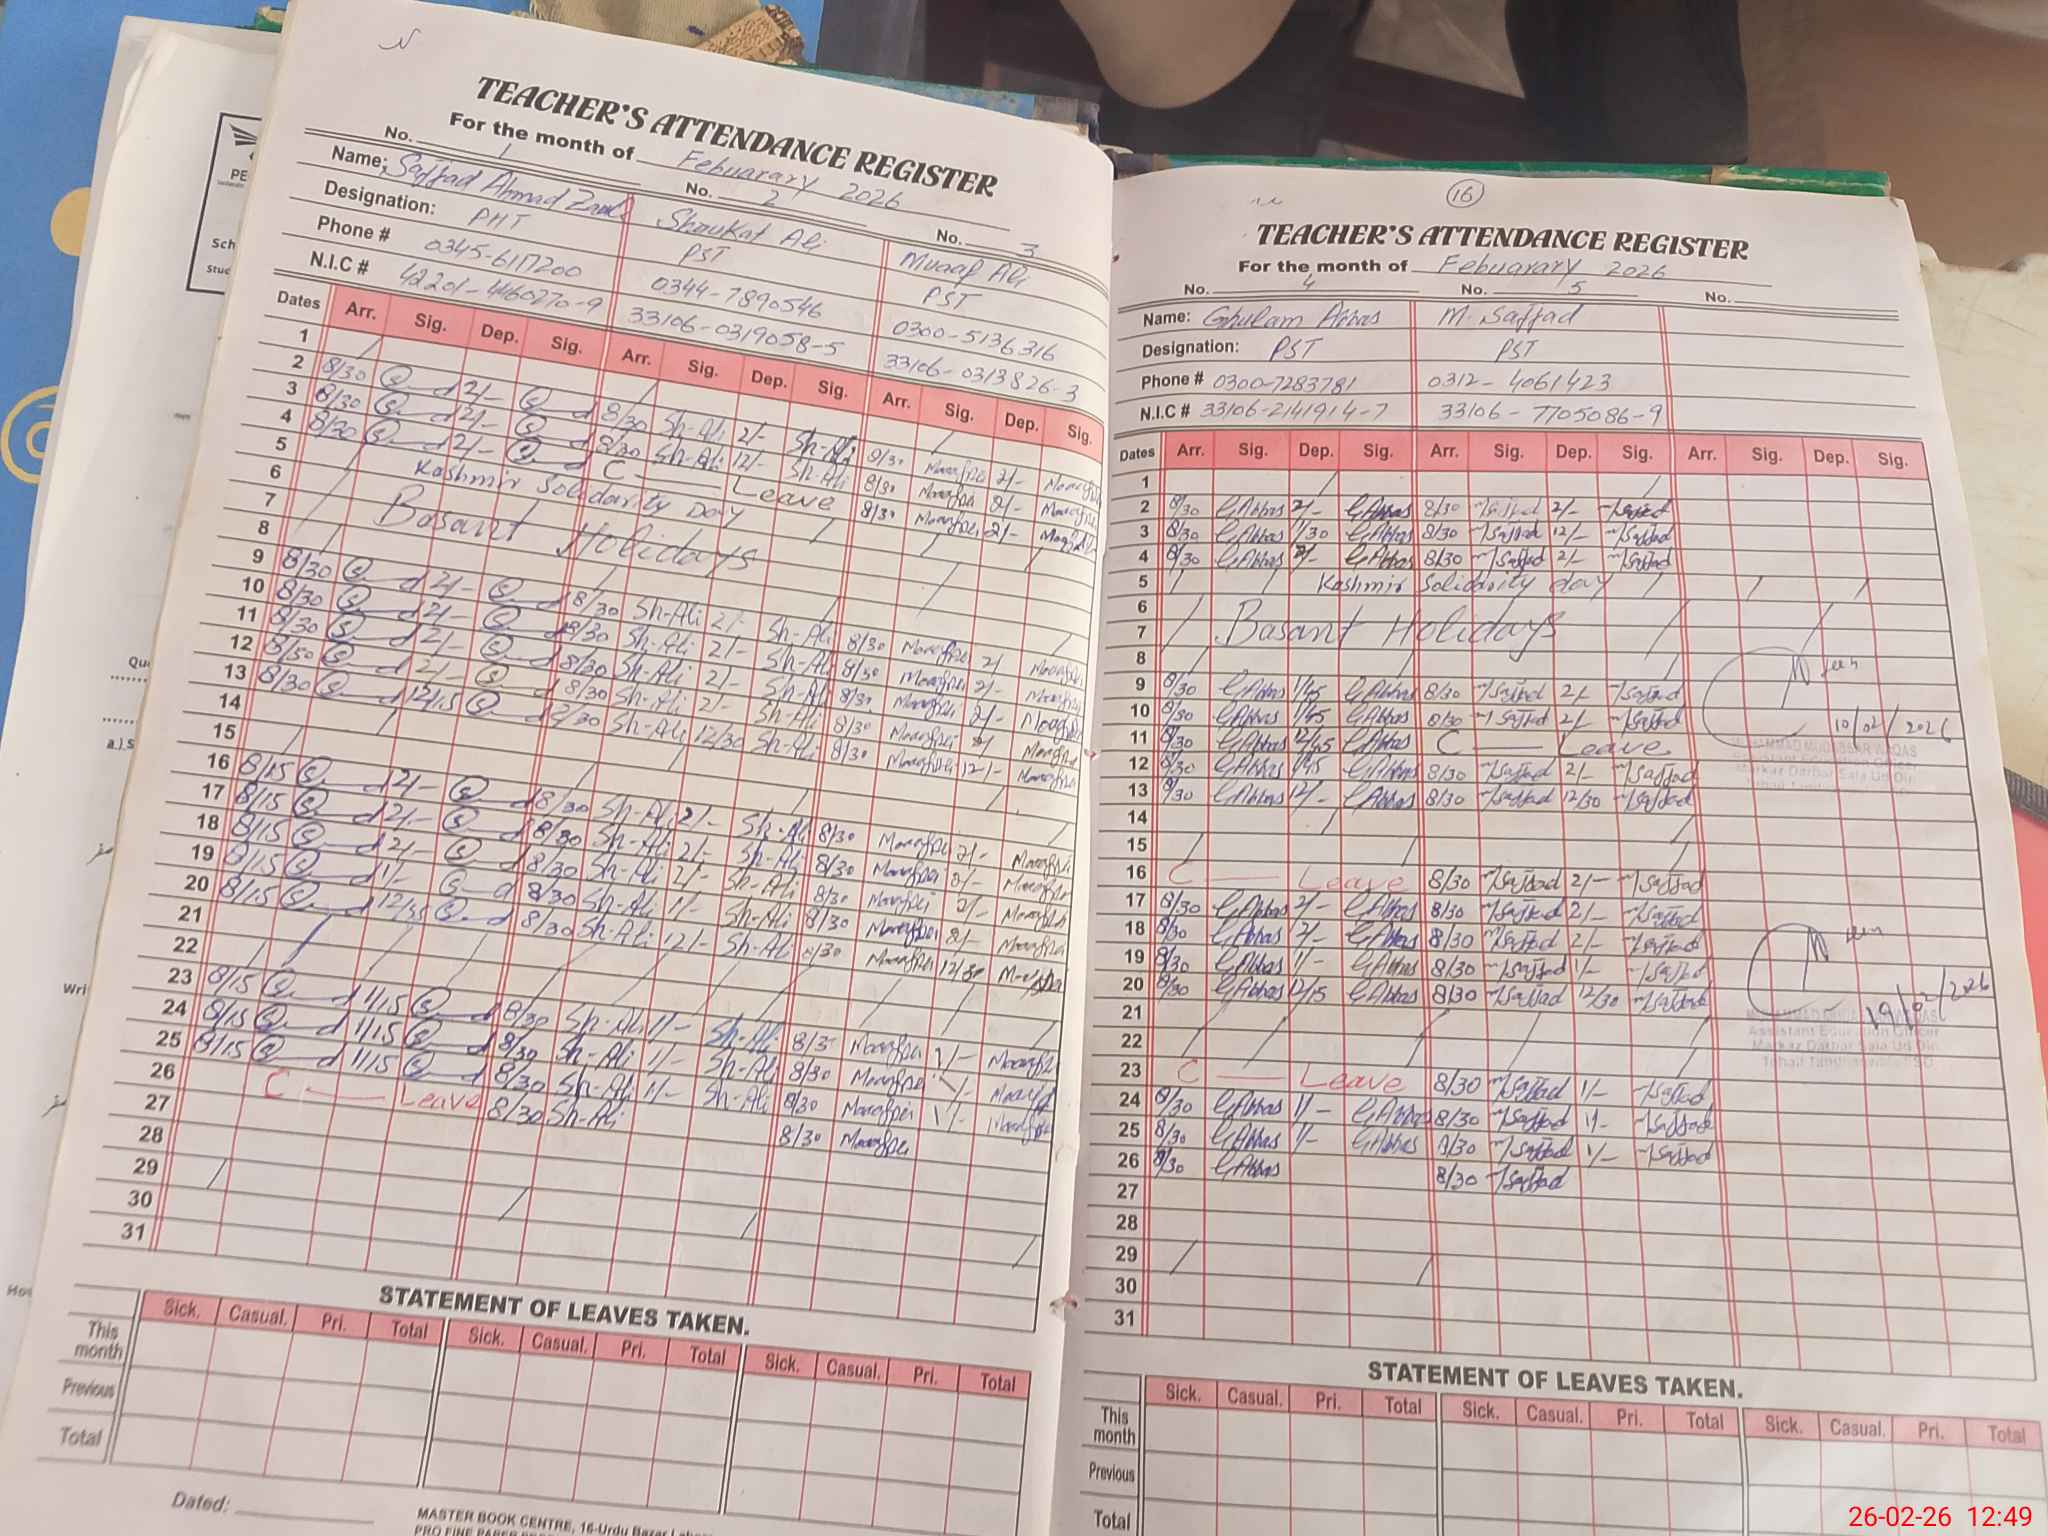 TEACHER'S ATTENDANCE REGISTER
For the month of Febuarary 2026
No. 1 No. 2 No. 3
Name: Sajjad Ahmad Shaukat Ali Muaaf Ali
Designation: PHT PST PST
Phone # 0345-6117200 0344-7890546 0300-5136316
N.I.C # 42201-4460770-9 33106-0319058-5 33106-0313826-3
Dates Arr. Sig. Dep. Sig. Arr. Sig. Dep. Sig. Arr. Sig. Dep. Sig.
1
2 8/30 2/- 8/30 Sh-Ali 2/- Sh-Ali 8/30 2/-
3 8/30 2/- 8/30 Sh-Ali 12/- Sh-Ali 8/30 2/-
4 8/30 2/- C Leave 8/30 2/-
5 Kashmir Solidarity Day
6
7 Basant Holidays
8
9 8/30 2/- 8/30 Sh-Ali 2/- Sh-Ali 8/30 2/
10 8/30 2/- 8/30 Sh-Ali 2/- Sh-Ali 8/30 2/-
11 8/30 2/- 8/30 Sh-Ali 2/- Sh-Ali 8/30 2/-
12 8/30 2/- 8/30 Sh-Ali 2/- Sh-Ali 8/30
13 8/30 12/15 8/30 Sh-Ali 12/30 Sh-Ali 8/30 12/-
14
15
16 8/15 2/- 8/30 Sh-Ali 2/- Sh-Ali 8/30 2/-
17 8/15 2/- 8/30 Sh-Ali 2/- Sh-Ali 8/30 2/-
18 8/15 2/- 8/30 Sh-Ali 2/- Sh-Ali 8/30 2/-
19 8/15 1/- 8/30 Sh-Ali 1/- Sh-Ali 8/30
20 8/15 12/35 8/30 Sh-Ali 12/- Sh-Ali 8/30 12/30
21
22
23 8/15 1/15 8/30 Sh-Ali 1/- Sh-Ali 8/3 1/-
24 8/15 1/15 8/30 Sh-Ali 1/- Sh-Ali 8/30 1/-
25 8/15 1/15 8/30 Sh-Ali 1/- Sh-Ali 8/30 1/-
26 C Leave 8/30 Sh-Ali 8/30
27
28
29
30
31
STATEMENT OF LEAVES TAKEN.
Sick. Casual. Pri. Total Sick. Casual. Pri. Total Sick. Casual. Pri. Total
This month
Previous
Total
Dated:
MASTER BOOK CENTRE, 16-Urdu Bazar
16
TEACHER'S ATTENDANCE REGISTER
For the month of Febuarary 2026
No. 4 No. 5 No.
Name: Ghulam Abbas M. Sajjad
Designation: PST PST
Phone # 0300-7283781 0312-4061423
N.I.C # 33106-2141914-7 33106-7705086-9
Dates Arr. Sig. Dep. Sig. Arr. Sig. Dep. Sig. Arr. Sig. Dep. Sig.
1
2 8/30 G Abbas 2/- G Abbas 8/30 M Sajjad 2/- M Sajjad
3 8/30 G Abbas 1/30 G Abbas 8/30 M Sajjad 12/- M Sajjad
4 8/30 G Abbas 2/- G Abbas 8/30 M Sajjad 2/- M Sajjad
5 Kashmir Solidarity day
6
7 Basant Holidays
8
9 8/30 G Abbas 1/45 G Abbas 8/30 M Sajjad 2/- M Sajjad
10 8/30 G Abbas 1/45 G Abbas 8/30 M Sajjad 2/- M Sajjad 10/02/2026
11 8/30 G Abbas 12/45 G Abbas C Leave
MUHAMMAD MUDASSAR WAQAS
Assistant Education Officer
Markaz Darbar Sala Ud Din
12 8/30 G Abbas 1/45 G Abbas 8/30 M Sajjad 2/- M Sajjad
13 8/30 G Abbas 12/- G Abbas 8/30 M Sajjad 12/30 M Sajjad
14
15
16 C Leave 8/30 M Sajjad 2/- M Sajjad
17 8/30 G Abbas 2/- G Abbas 8/30 M Sajjad 2/- M Sajjad
18 8/30 G Abbas 2/- G Abbas 8/30 M Sajjad 2/- M Sajjad
19 8/30 G Abbas 1/- G Abbas 8/30 M Sajjad 1/- M Sajjad
20 8/30 G Abbas 12/15 G Abbas 8/30 M Sajjad 12/30 M Sajjad 19/02/2026
21
Assistant Education Officer
Markaz Darbar Sala Ud Din
22
23 C Leave 8/30 M Sajjad 1/- M Sajjad
24 8/30 G Abbas 1/- G Abbas 8/30 M Sajjad 1/- M Sajjad
25 8/30 G Abbas 1/- G Abbas 8/30 M Sajjad 1/- M Sajjad
26 8/30 G Abbas 8/30 M Sajjad
27
28
29
30
31
STATEMENT OF LEAVES TAKEN.
Sick. Casual. Pri. Total Sick. Casual. Pri. Total Sick. Casual. Pri. Total
This month
Previous
Total
26-02-26 12:49